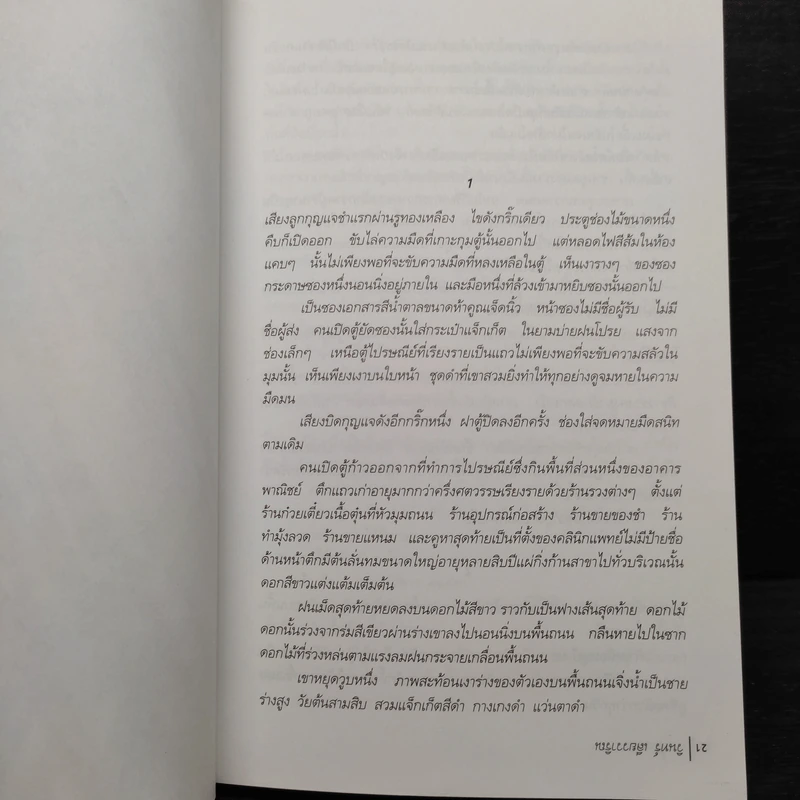 1
เสียงลูกกุญแจชำแรกผ่านรูทองเหลือง ไขดังกริ๊กเดียว ประตูช่องไม้ขนาดหนึ่ง
คืบก็เปิดออก ขับไล่ความมืดที่เกาะกุมตู้นั้นออกไป แต่หลอดไฟสีส้มในห้อง
แคบๆ นั้นไม่เพียงพอที่จะขับความมืดที่หลงเหลือในตู้ เห็นเงารางๆ ของซอง
กระดาษซองหนึ่งนอนนิ่งอยู่ภายใน และมือหนึ่งที่ล้วงเข้ามาหยิบซองนั้นออกไป
เป็นซองเอกสารสีน้ำตาลขนาดห้าคูณเจ็ดนิ้ว หน้าซองไม่มีชื่อผู้รับ ไม่มี
ชื่อผู้ส่ง คนเปิดตู้ยัดซองนั้นใส่กระเป๋าแจ็กเก็ต ในยามบ่ายฝนโปรย แสงจาก
ช่องเล็กๆ เหนือตู้ไปรษณีย์ที่เรียงรายเป็นแถวไม่เพียงพอที่จะขับความสลัวใน
มุมนั้น เห็นเพียงเงาบนใบหน้า ชุดดำที่เขาสวมยิ่งทำให้ทุกอย่างดูจมหายในความ
มืดมน
เสียงบิดกุญแจดังอีกกริ๊กหนึ่ง ฝาตู้ปิดลงอีกครั้ง ช่องใส่จดหมายมืดสนิท
ตามเดิม
คนเปิดตู้ก้าวออกจากที่ทำการไปรษณีย์ซึ่งกินพื้นที่ส่วนหนึ่งของอาคาร
พาณิชย์ ตึกแถวเก่าอายุมากกว่าครึ่งศตวรรษเรียงรายด้วยร้านรวงต่างๆ ตั้งแต่
ร้านก๋วยเตี๋ยวเนื้อตุ๋นที่หัวมุมถนน ร้านอุปกรณ์ก่อสร้าง ร้านขายของชำ ร้าน
ทำมุ้งลวด ร้านขายแหนม และคูหาสุดท้ายเป็นที่ตั้งของคลินิกแพทย์ไม่มีป้ายชื่อ
ด้านหน้าตึกมีต้นลั่นทมขนาดใหญ่อายุหลายสิบปีแผ่กิ่งก้านสาขาไปทั่วบริเวณนั้น
ดอกสีขาวแต่งแต้มเต็มต้น
ฝนเม็ดสุดท้ายหยดลงบนดอกไม้สีขาว ราวกับเป็นฟางเส้นสุดท้าย ดอกไม้
ดอกนั้นร่วงจากร่มสีเขียวผ่านร่างเขาลงไปนอนนิ่งบนพื้นถนน กลืนหายไปในซาก
ดอกไม้ที่ร่วงหล่นตามแรงลมฝนกระจายเกลื่อนพื้นถนน
เขาหยุดวูบหนึ่ง ภาพสะท้อนเงาร่างของตัวเองบนพื้นถนนเจิ่งน้ำเป็นชาย
ร่างสูง วัยต้นสามสิบ สวมแจ็กเก็ตสีดำ กางเกงดำ แว่นตาดำ
วินทร์ เลียววาริณ | 21